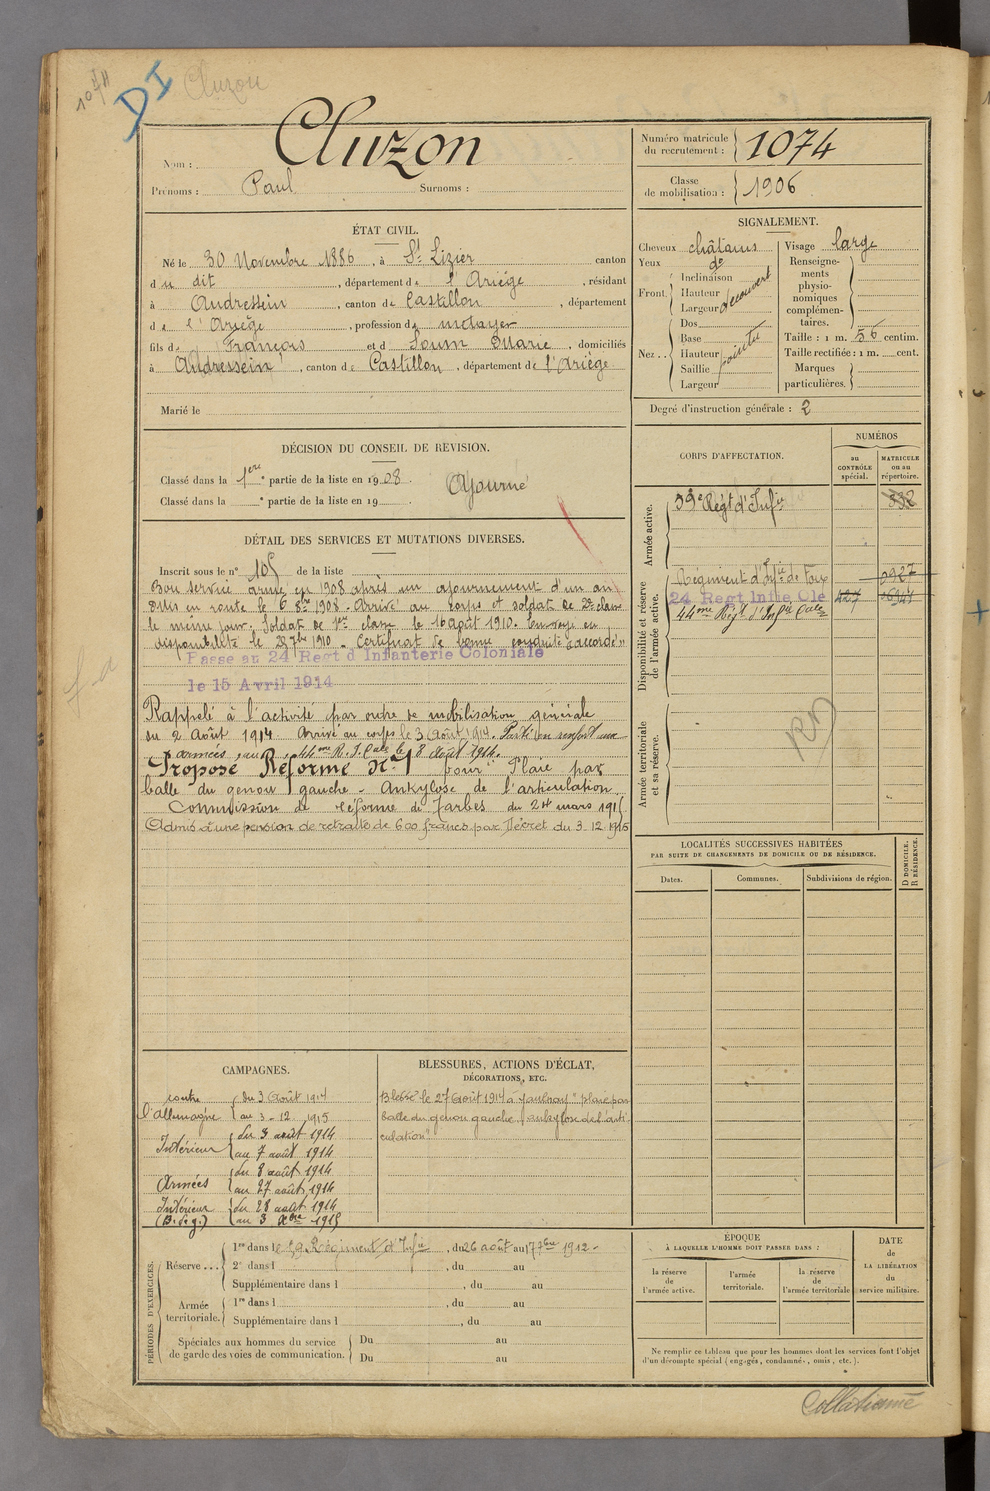 1074
DI
Cluzon
Nom : Cluzon
Prénoms : Paul Surnoms :
Numéro matricule du recrutement : 1074
Classe de mobilisation : 1906
ÉTAT CIVIL.
Né le 30 Novembre 1886, à St Lizier canton
du dit, département de l'Ariège, résidant
à Audressein, canton de Castillon, département
de l'Ariège, profession de métayer
fils de François et de Soum Marie, domiciliés
à Audressein, canton de Castillon, département de l'Ariège
Marié le
SIGNALEMENT.
Cheveux châtains
Yeux do
Front. Inclinaison
Hauteur
Largeur
découvert
Nez... Dos
Base
Hauteur
Saillie
Largeur
pointu
Visage large
Renseignements physionomiques complémentaires.
Taille : 1 m. 56 centim.
Taille rectifiée : 1 m. cent.
Marques particulières.
Degré d'instruction générale : 2
DÉCISION DU CONSEIL DE RÉVISION.
Classé dans la 1ère partie de la liste en 1908. Ajourné
Classé dans la e partie de la liste en 19 .
CORPS D'AFFECTATION.
NUMÉROS
au CONTRÔLE spécial.
MATRICULE ou au répertoire.
Armée active.
59e Régt d'Infie 332
Disponibilité et réserve de l'armée active.
Régiment d'Infie de Foix 0927
24 Regt Infie Cle
44me Régt d'Infie Cale
Armée territoriale et sa réserve.
DÉTAIL DES SERVICES ET MUTATIONS DIVERSES.
Inscrit sous le no 105 de la liste
Bon service armé en 1908 après un ajournement d'un an
Mis en route le 6 8bre 1908. Arrivé au corps et soldat de 2e classe
le même jour. Soldat de 1re classe le 16 août 1910. Envoyé en
disponibilité le 25 7bre 1910. Certificat de bonne conduite "accordé"
Passé au 24 Regt d'Infanterie Coloniale
le 15 Avril 1914
Rappelé à l'activité par ordre de mobilisation générale
du 2 Août 1914. Arrivé au corps le 3 Août 1914. Parti en renfort aux
armées, au 44me R.I. Cale le 8 août 1914.
Proposé Réforme No 1 pour "Plaie par
balle du genou gauche - Ankylose de l'articulation
Commission de réforme de Tarbes du 24 mars 1915
Admis à une pension de retraite de 600 francs par Décret du 3-12-1915
LOCALITÉS SUCCESSIVES HABITÉES
PAR SUITE DE CHANGEMENTS DE DOMICILE OU DE RÉSIDENCE.
Dates. Communes. Subdivisions de région. D DOMICILE. R RÉSIDENCE.
CAMPAGNES.
contre l'Allemagne du 3 Août 1914
au 3-12-1915
Intérieur du 3 août 1914
au 7 août 1914
Armées du 8 août 1914
au 27 août 1914
Intérieur (B. de g.) du 28 août 1914
au 3 Xbre 1915
BLESSURES, ACTIONS D'ÉCLAT,
DÉCORATIONS, ETC.
Blessé le 27 Août 1914 à Jaulnay "plaie par
balle du genou gauche, ankylose de l'arti
culation"
PÉRIODES D'EXERCICES.
Réserve... 1re dans le 59 Régiment d'Infie, du 26 août au 17 7bre 1912.
2e dans l , du au
Supplémentaire dans l , du au
Armée territoriale. 1re dans l , du au
Supplémentaire dans l , du au
Spéciales aux hommes du service de garde des voies de communication. Du au
Du au
ÉPOQUE
À LAQUELLE L'HOMME DOIT PASSER DANS :
la réserve de l'armée active.
l'armée territoriale.
la réserve de l'armée territoriale
DATE DE LA LIBÉRATION du service militaire.
Ne remplir ce tableau que pour les hommes dont les services font l'objet
d'un décompte spécial (engagés, condamnés, omis, etc.).
Collationné